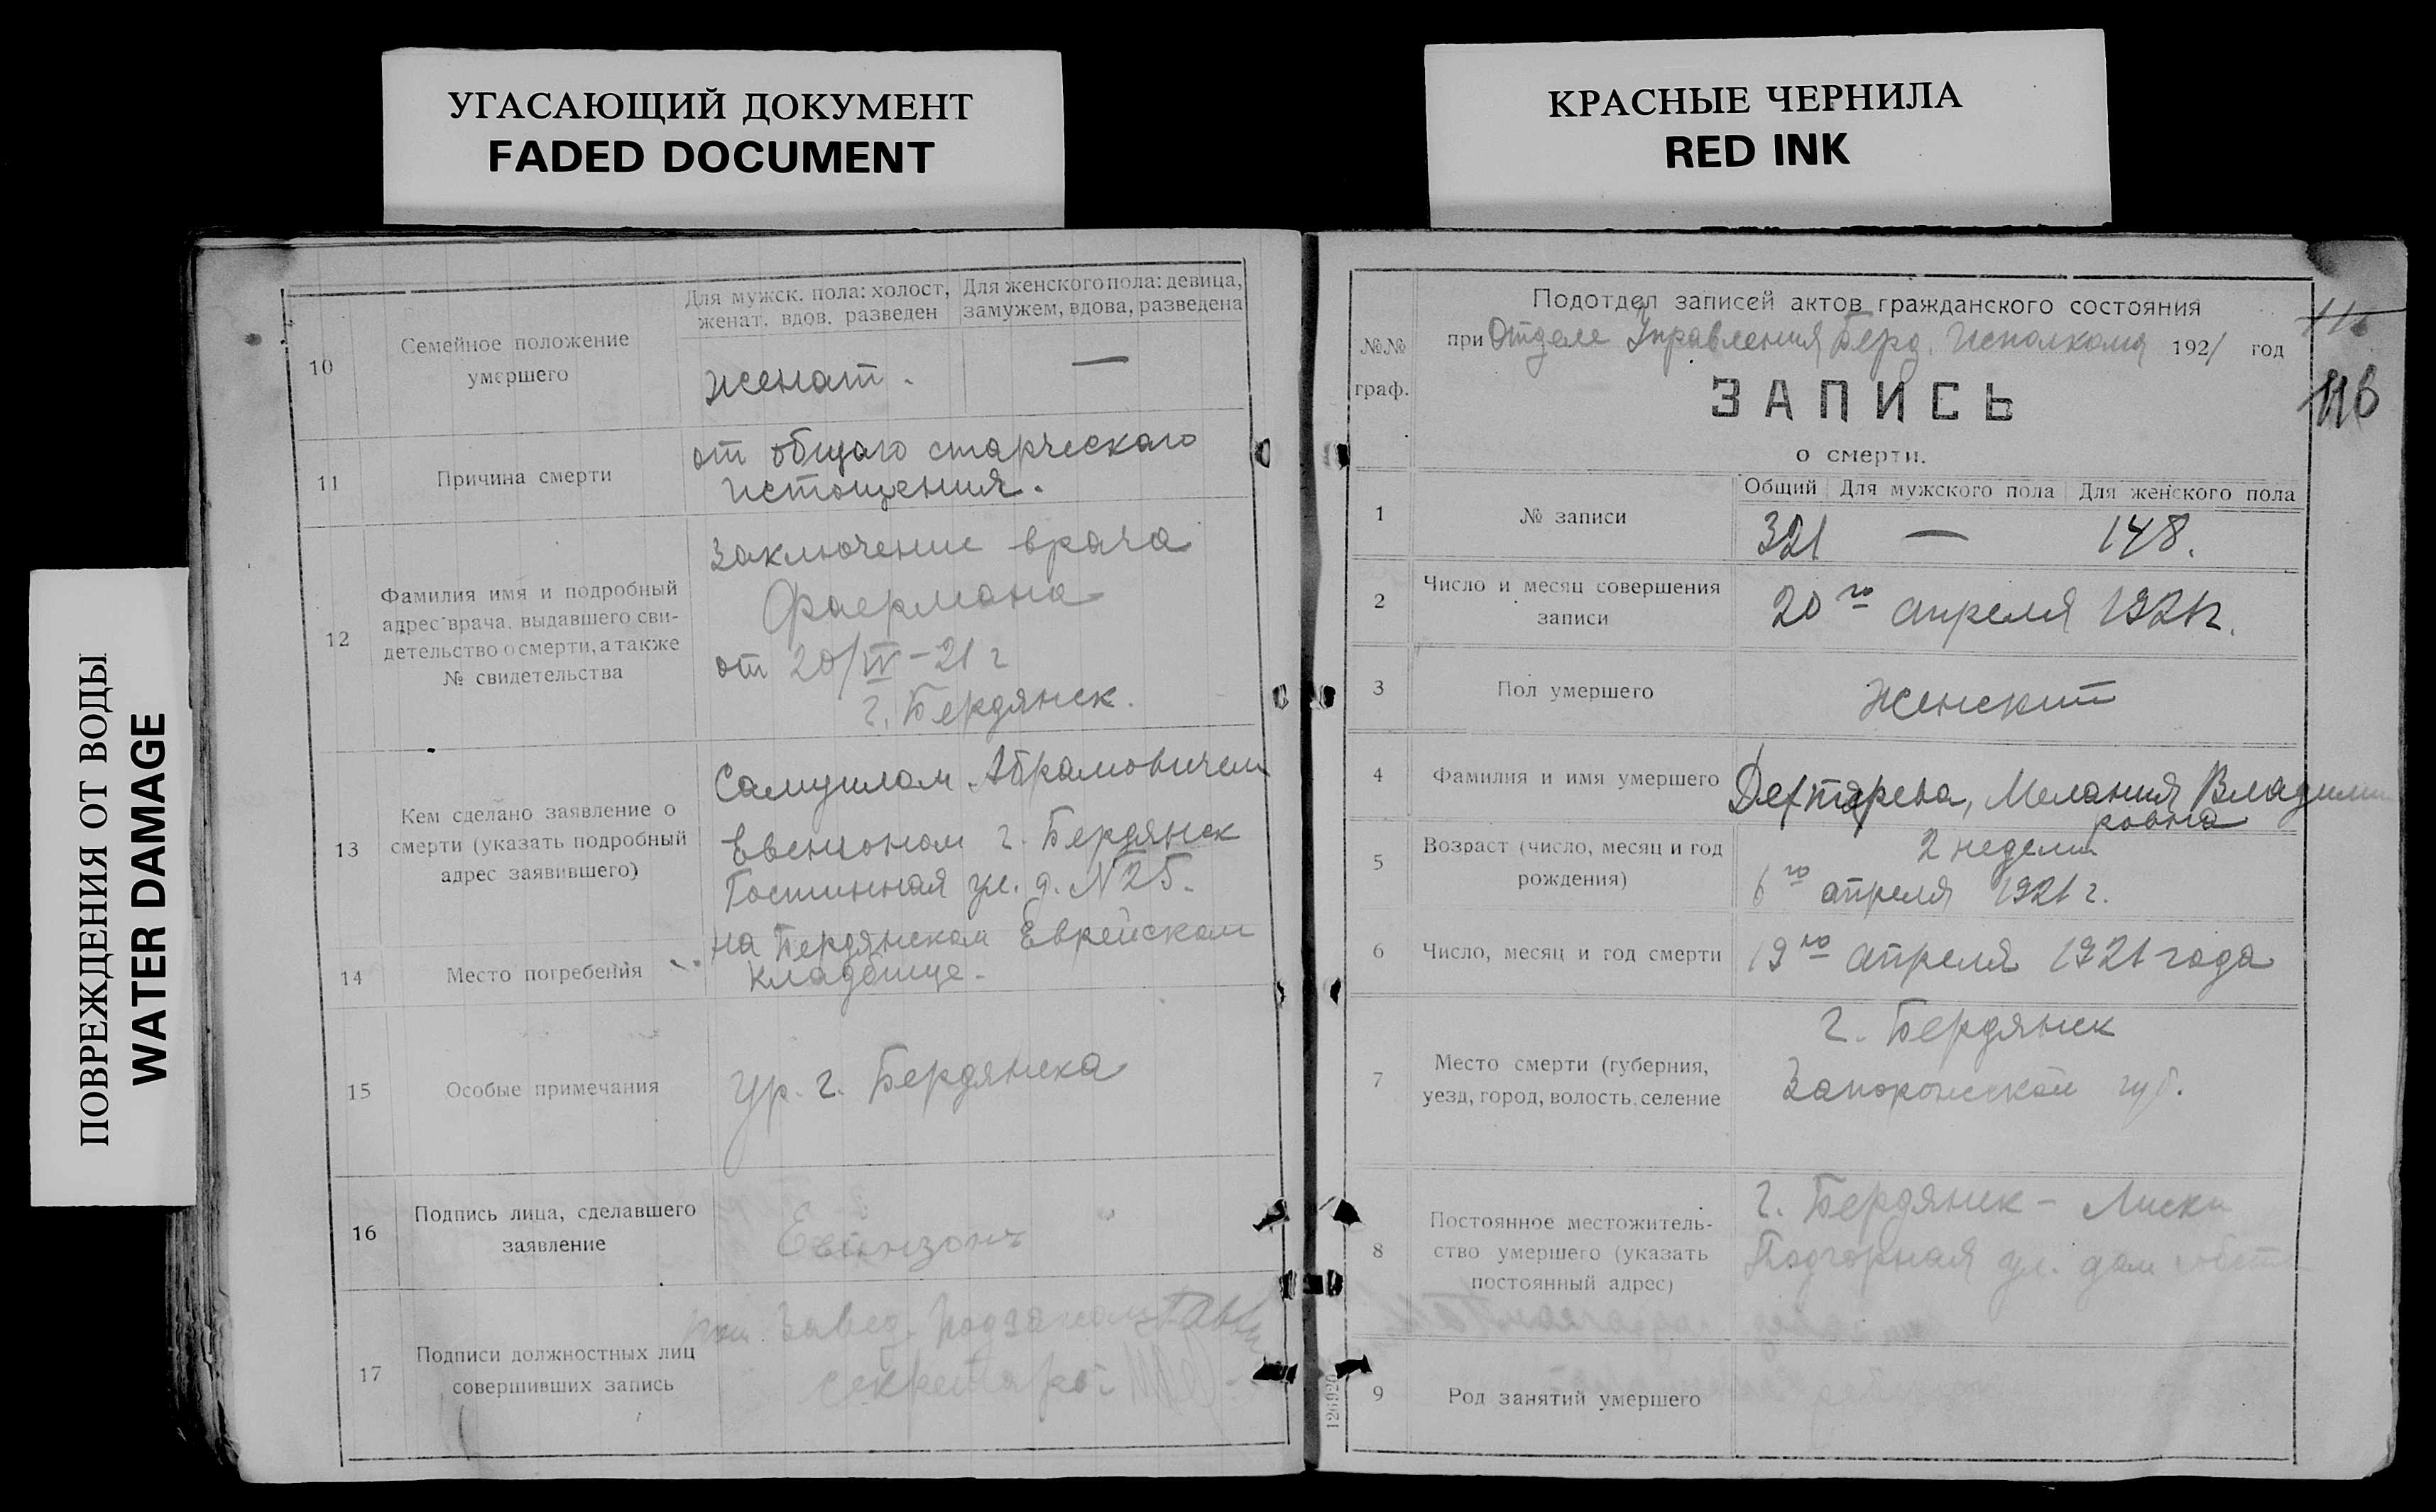 УГАСАЮЩИЙ ДОКУМЕНТ
FADED DOCUMENT
КРАСНЫЕ ЧЕРНИЛА
RED INK
ПОВРЕЖДЕНИЯ ОТ ВОДЫ
WATER DAMAGE
10
Семейное положение
умершего
Для мужск. пола: холост,
женат, вдов, разведен
Для женского пола: девица,
замужем, вдова, разведена
женат. —
11
Причина смерти
от общаго старческаго
истощения.
12
Фамилия имя и подробный
адрес врача, выдавшего сви-
детельство о смерти, а также
№ свидетельства
Заключение врача
Фаермана
от 20/IV-21 г
г. Бердянск.
13
Кем сделано заявление о
смерти (указать подробный
адрес заявившего)
Самуилом Абрамовичем
Евензоном г. Бердянск
Гостинная ул. д. N 25.
14
Место погребения
на Бердянском Еврейском
кладбище.
15
Особые примечания
Ур. г. Бердянска
16
Подпись лица, сделавшего
заявление
17
Подписи должностных лиц
совершивших запись
Завед.
секретарь
126920
№№
граф.
Подотдел записей актов гражданского состояния
при Отделе Управления Берд. Исполкома 1921 год
ЗАПИСЬ
о смерти.
116
1
№ записи
Общий Для мужского пола Для женского пола
321 — 148.
2
Число и месяц совершения
записи
20го апреля 1921г.
3
Пол умершего
Женский
4
Фамилия и имя умершего
Дехтярева, Мелания Владими
ровна
5
Возраст (число, месяц и год
рождения)
2 недели
6го апреля 1921 г.
6
Число, месяц и год смерти
19го апреля 1921 года
7
Место смерти (губерния,
уезд, город, волость, селение
г. Бердянск
Запорожской губ.
8
Постоянное местожитель-
ство умершего (указать
постоянный адрес)
г. Бердянск - Лиски
Подгорная ул. дом
9
Род занятий умершего